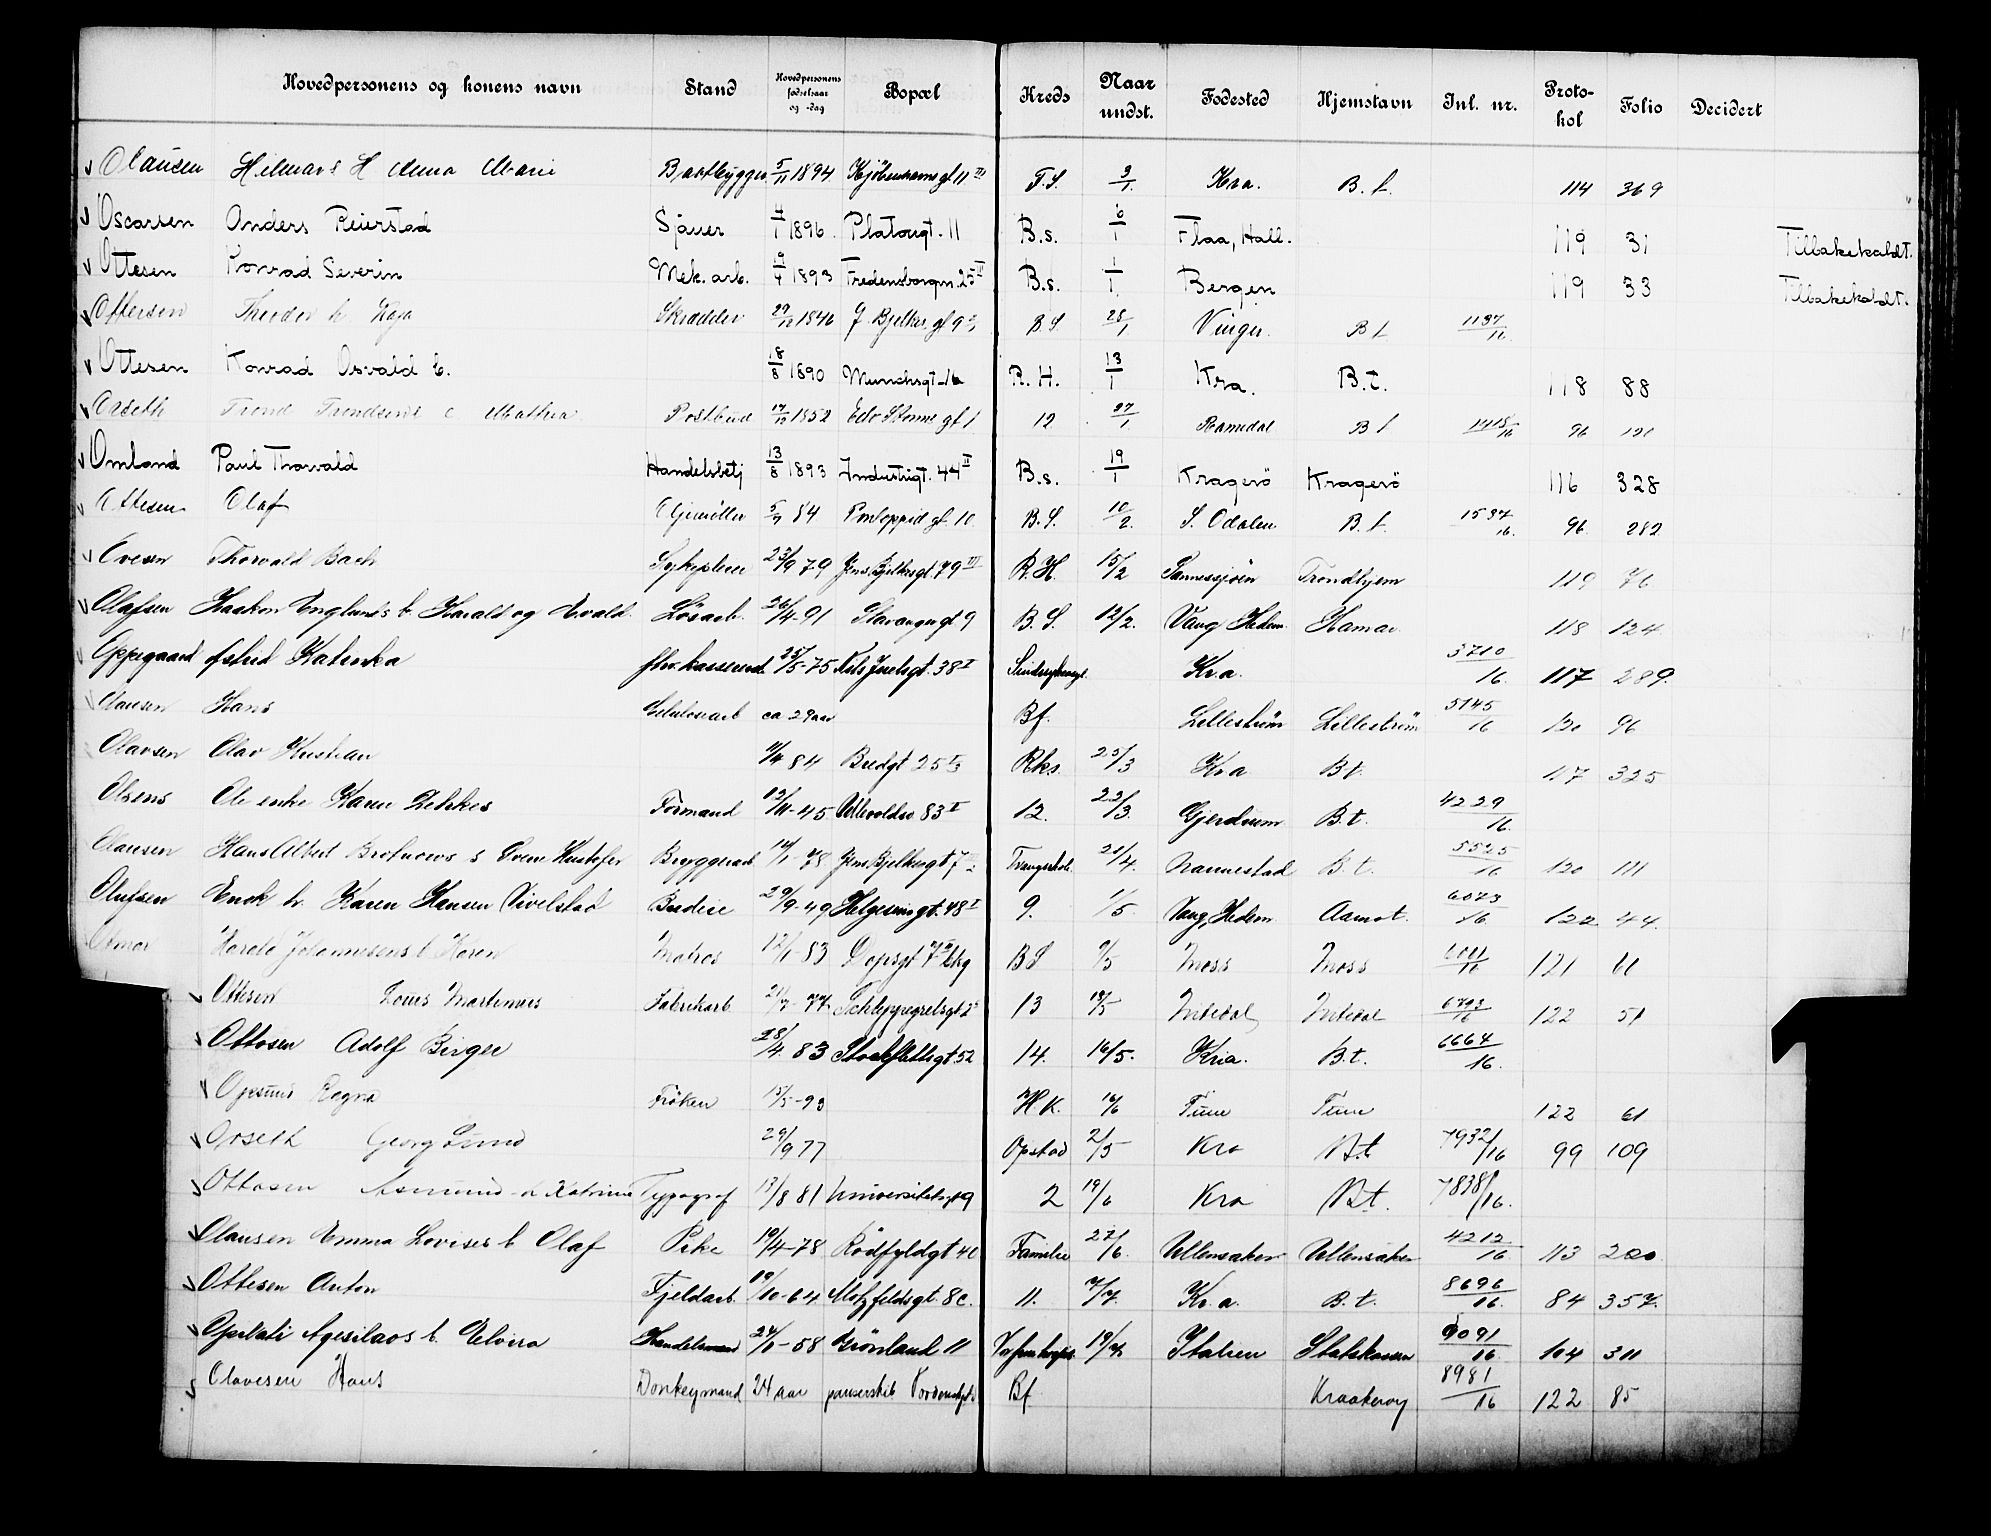 Hovedpersonens og konens navn Stand Hovedpersonens fødselsaar og -dag Bopæl Kreds Naar undst. Fødested Hjemstavn Inl. nr. Protokol Folio Decidert
Olausen Hilmars H Anna Marie Baatbygger 5/11 1894 Kjøbenhavns gt 11 III F.S. 3/1. Kra. B.t. 114 369
Oscarsen Anders Reierstad Sjauer 4/1 1896. Platougt. 11 B.s. 6/1 Flaa, Hall. 119 31 Tilbakekaldt.
Ottesen Konrad Severin Mek. arb. 9/4 1893 Fredensborgvn. 25 II B.s. 1/1. Bergen 119 33 Tilbakekaldt.
Ottersen Theodor h. Kaja Skrædder 29/12 1846 J. Bjelkes gt 9 B.S 28/1 Vinger. B t. 1137/16.
Ottesen Konrad Osvald b. 18/8 1890 Munchsgt. 16 R.H. 13/1 Kra. B.t. 118 88
Orseth Trond Trondsens e Mathea Postbud 17/12 1852 Edv Storms gt 1 12 27/1 Romsdal B t 1415/16 96 121
Omland Paul Thorvald Handelsbetj 13/8 1893 Industrigt. 44 II B.s. 19/1 Kragerö Kragerö 116 328
Ottesen Olaf 84 Pontoppid gt. 10 B.S. 10/2. S. Odalen B.t. 1537/16. 96 282
Ovesen Thorvald Bach Sykepleier 23/9 79 Jens Bjelkesgt. 79 III R.H. 15/2 Sannessjöen Trondhjem 119 76
Olafsen Haakon Englunds b Harald og Evald. Lösarb. 26/4-91 Stavangergt 9 B.S. 12/2. Vang Hedm. Hamar. 118 124
Oppegaard Astrid Katinka fhv. kasserer 25/5-75 Nils Juelsgt. 38 I Kr.a. 3710/16. 117 289.
Olausen Hans Celulosearb ca 29 aar Bf. Lilleström Lilleström 5145/16 120 96
Olavsen Olav Kristian 84 Bredgt 25 Rks. 25/3 Kr a B t. 117 325
Olsens Ole enke Karen Formand 12/11-45 Ullevoldsv. 83 I 12. 22/3. Gjerdrum B.t. 4229/16.
Olausen Hans Albert s Svein Kristofer Bryggeriarb 78 Jens Bjelkesgt 7 21/4. Nannestad B.t. 5525/16 120 111
Olufsen Enok h. Karen Hansen Sivelstad Budeie 29/9-49 Helgesensgt. 48 I 9. 1/5. Vang, Hedem. Aamot. 6073/16. 122 44.
Harald Johannesens b Karen Matros 12/1-83 Dopsgt 7 B S 9/5 Moss Moss 121 61
Ottesen Louis Martinius Fabrikarb. 77 Schleppegrelsgt 13 18/5 Nitedal Nitedal 6793/16 122 51
Ottosen Adolf Birger 28/4 83 Stockflethsgt 52 14. 16/5. Kria. B.t. 6664/16.
Opsund Ragna Fröken 15/5-93 H.K. 16/6 Tune Tune 122 61
Orseth Georg Lund 29/9 77 Opstad 2/5 Kra B.t 7932/16 99 109
Ottosen Asmund h Katrine Typograf 13/8 81 Universitetsgt 9 2 19/6 Kra B.t. 7838/16.
Olausen Emma Lovises b Olaf Pike 19/4-78 Rödfyldgt 40 Familie 27/6. Ullensaker Ullensaker 4212/16 113 200
Ottesen Anton Fjeldarb. 19/10-64 Motzfeldsgt. 8c. 11. 7/7. Kr.a. B.t. 8696/16. 84 357.
Opilati Agesilaos b. Elvira Handelsmand 58 Grönland 11 19/7. Italien Statskassen 9091/16. 104 311
Olavesen Hans Donkeymand 24 aar panserskib Bf Kraakeröy 8981/16 122 85